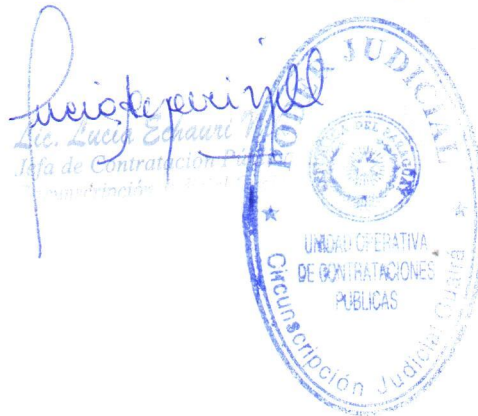 Lic. Lucia Echauri
Jefa de Contratación
PODER JUDICIAL
REPUBLICA DEL PARAGUAY
UNIDAD OPERATIVA
DE CONTRATACIONES
PUBLICAS
Circunscripción Judicial Guairá